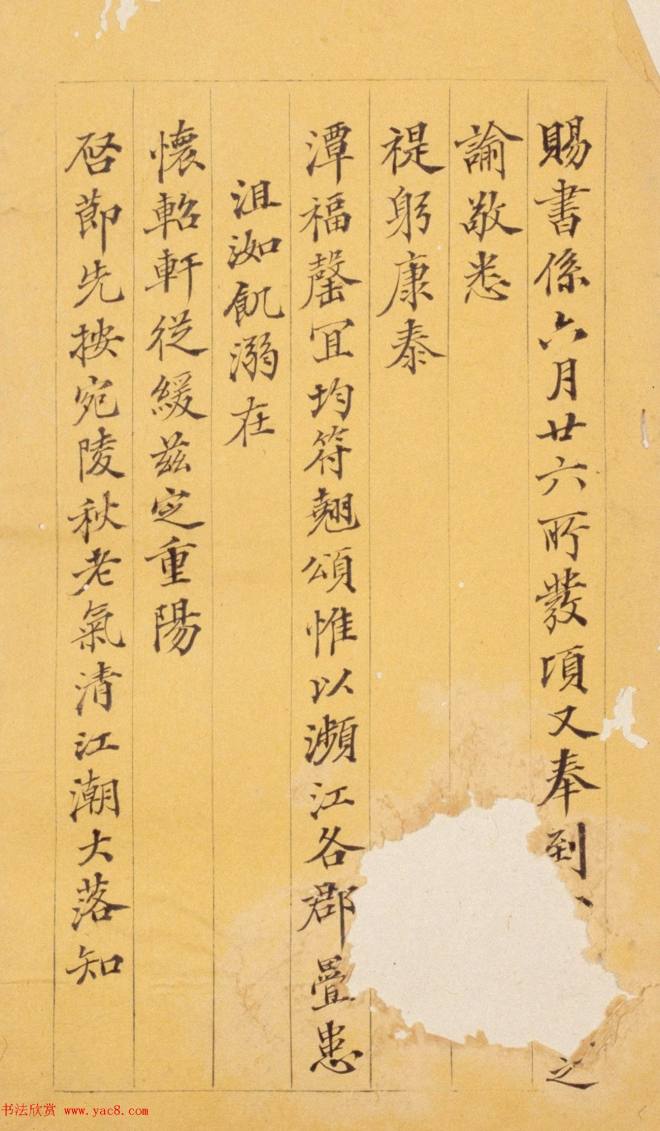 賜書係六月廿六所發頃又奉到 之
諭敬悉
禔躬康泰
潭福罄宜均符翹頌惟以瀕江各郡疊患
沮洳飢溺在
懷軺軒從緩茲定重陽
啓節先按宛陵秋老氣清江潮大落知
书法欣赏 www.yac8.com